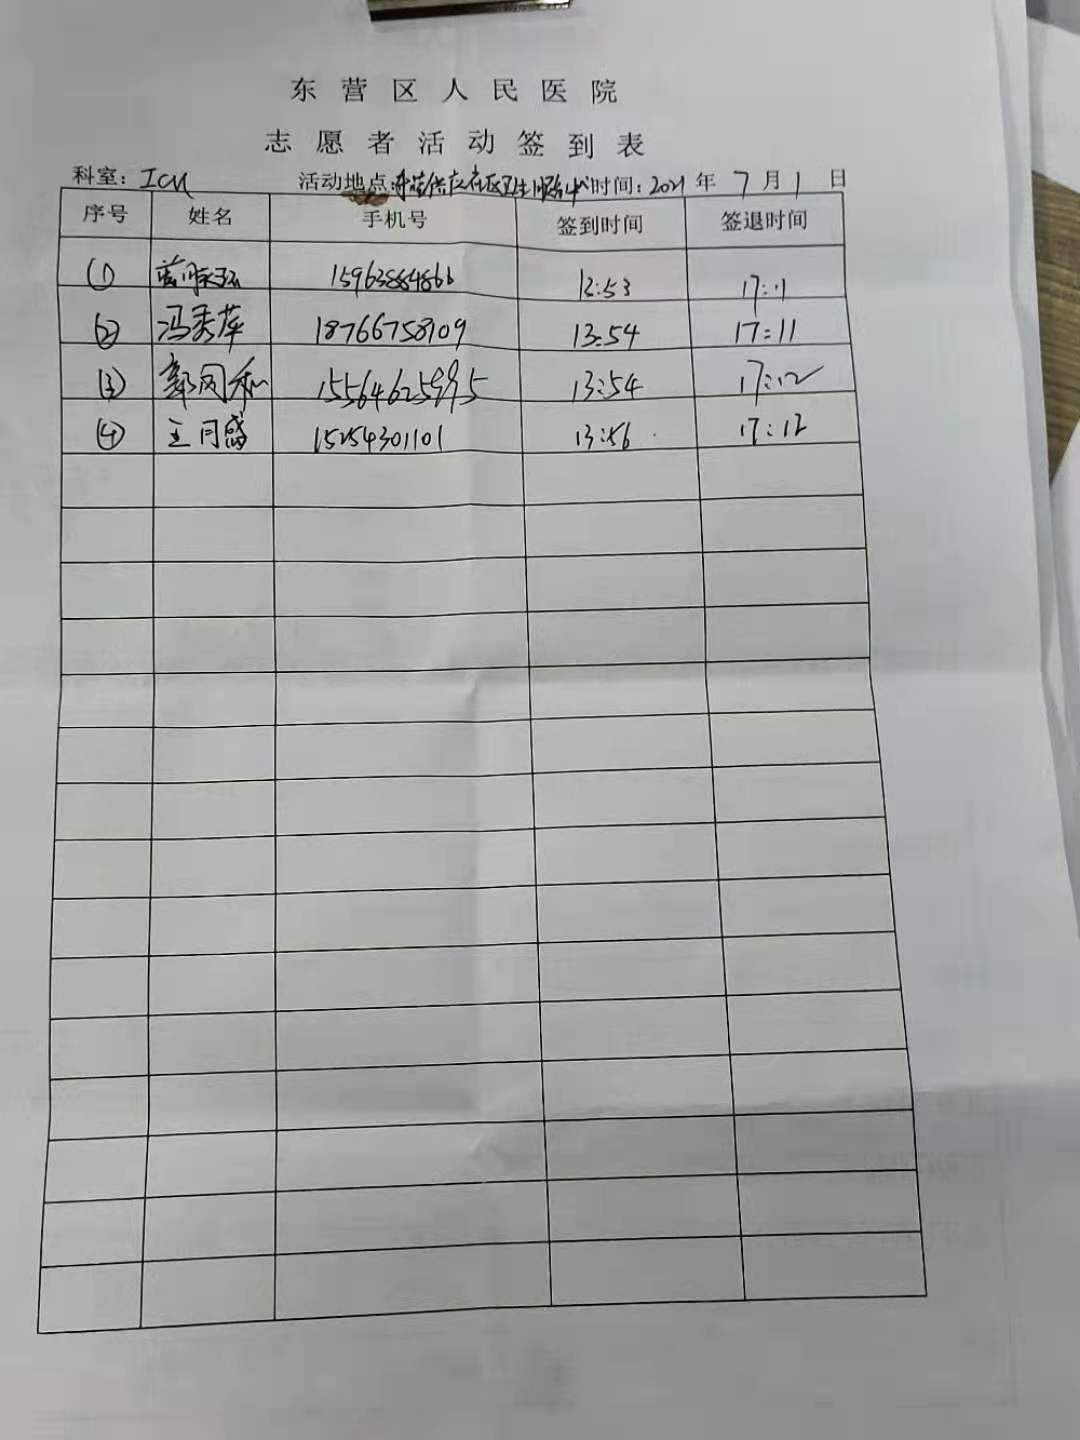 东营区人民医院
志愿者活动签到表
科室：ICU 活动地点：社区卫生服务中心 时间：2021年7月1日
序号 姓名 手机号 签到时间 签退时间
① 15963884866 13:53 17:11
② 冯秀萍 18766758109 13:54 17:11
③ 郭同和 15564625995 13:54 17:12
④ 王月盛 15254301101 13:56 17:12